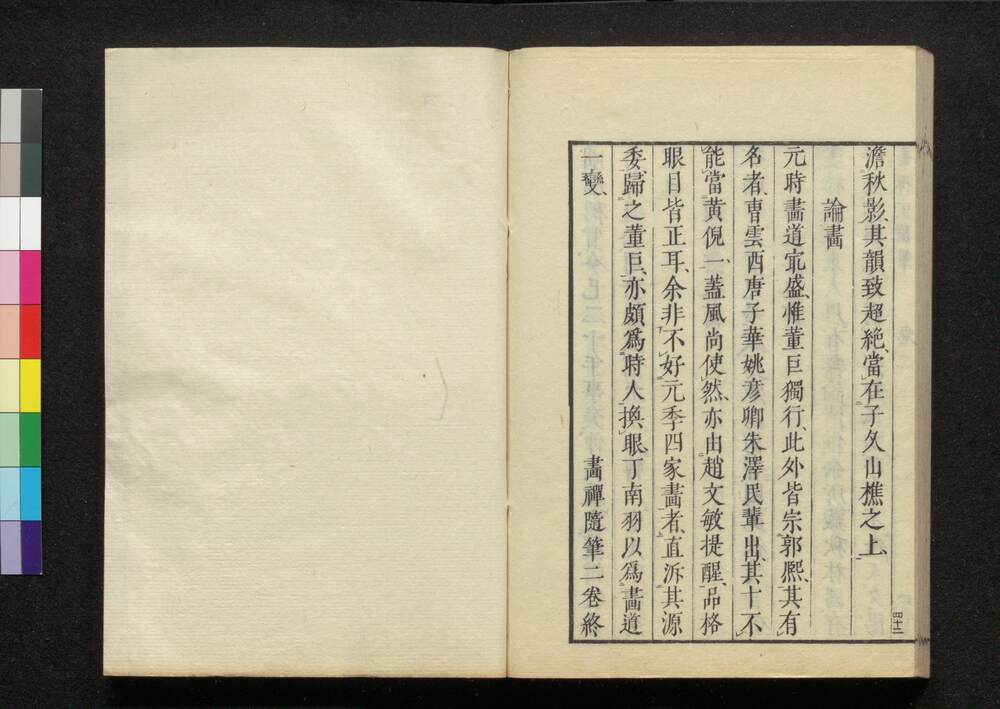 澹秋影、其韻致超絶、當在子久山樵之上、
論畫
元時畫道㝡盛、惟董巨獨行、此外皆宗郭熈、其有
名者、曹雲西唐子華姚彦卿朱澤民輩出、其十不
能當黃倪一、蓋風尚使然、亦由趙文敏提醒、品格
眼目皆正耳、余非不好元季四家畫者、直泝其源
委、歸之董巨、亦頗爲時人換眼、丁南羽以爲畫道
一變、
畫禪隨筆二卷終
四十二